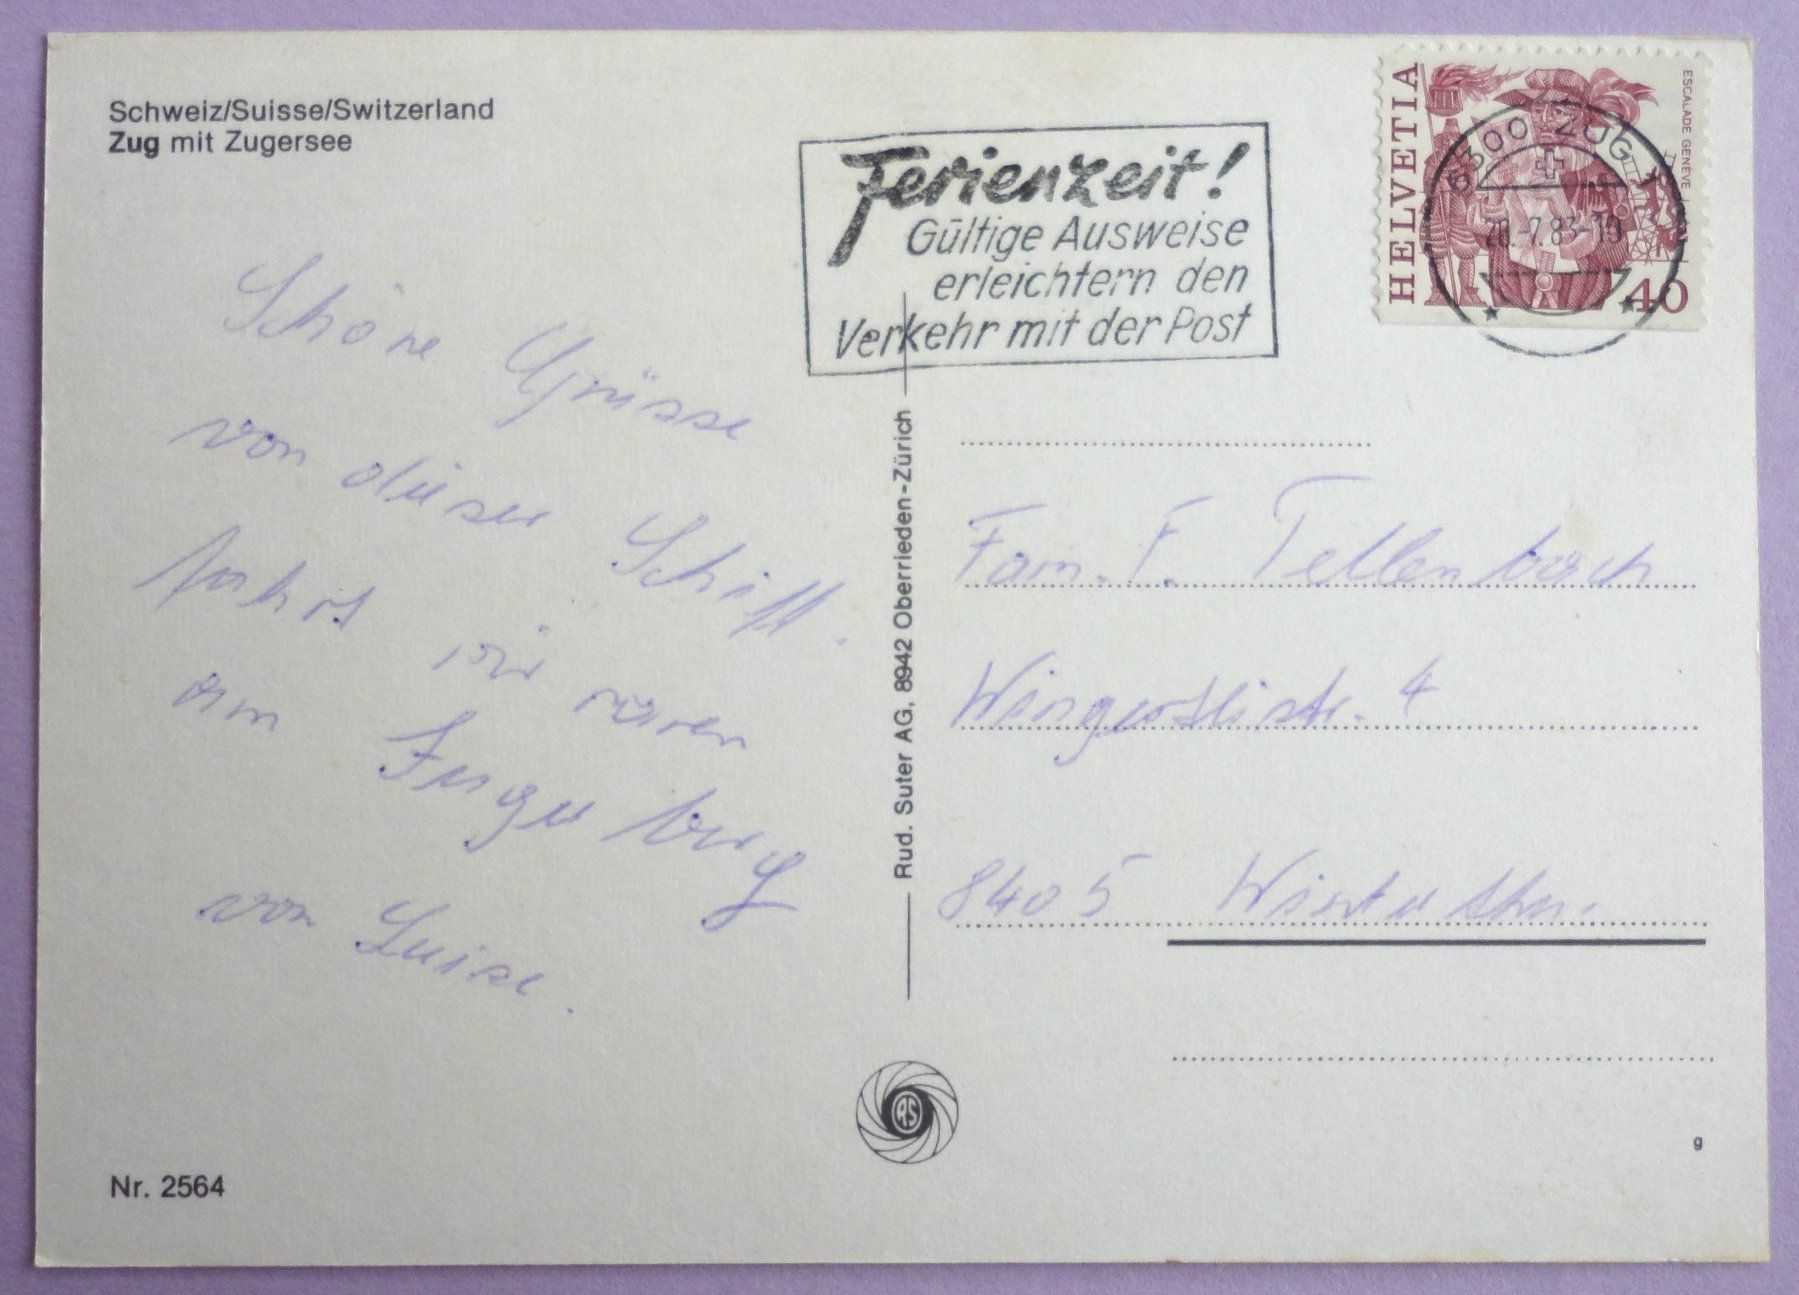 Schweiz/Suisse/Switzerland
Zug mit Zugersee
Ferienzeit!
Gültige Ausweise
erleichtern den
Verkehr mit der Post
HELVETIA
ESCALADE GENÈVE
40
6300 ZUG
28.-7.83-19
Schöne Grüsse
von dieser Schiff.
fahrt wir waren
am Zugerberg
von Luise.
Rud. Suter AG, 8942 Oberrieden-Zürich
Fam. F. Tellenbach
Wingertlistr. 4
8405 Winterthur.
RS
g
Nr. 2564